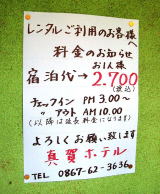 レンタルご利用のお客様
へ
料金のお知らせ
お1人様
宿泊代→2.700
(税込)
チェックイン PM 3.00〜
〃 アウト AM 10.00
(以降は延長料金になります)
よろしくお願い致します
真賀ホテル
TEL 0867-62-3636